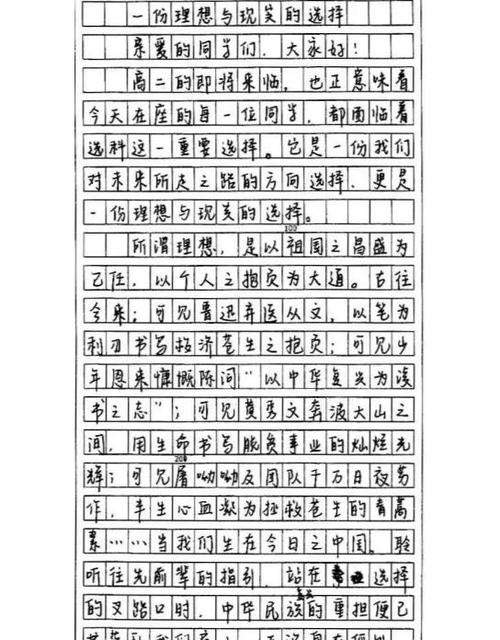 一份理想与现实的选择
亲爱的同学们，大家好！
高二的即将来临，也正意味着
今天在座的每一位同学，都面临着
选科这一重要选择。它是一份我们
对未来所走之路的方向选择，更是
一份理想与现实的选择。
100
所谓理想，是以祖国之昌盛为
己任，以个人之抱负为大道。古往
今来；可见鲁迅弃医从文，以笔为
利刃书写救济苍生之抱负；可见少
年恩来慷慨陈词“以中华复兴为读
书之志”；可见黄秀文奔波大山之
间，用生命书写脱贫事业的灿烂光
200
辉；可见屠呦呦及团队千万日夜劳
作，半生心血凝为拯救苍生的青蒿
素……当我们生在今日之中国。聆
听往先前辈的指引，站在选择
的叉路口时，中华民族的重担便已